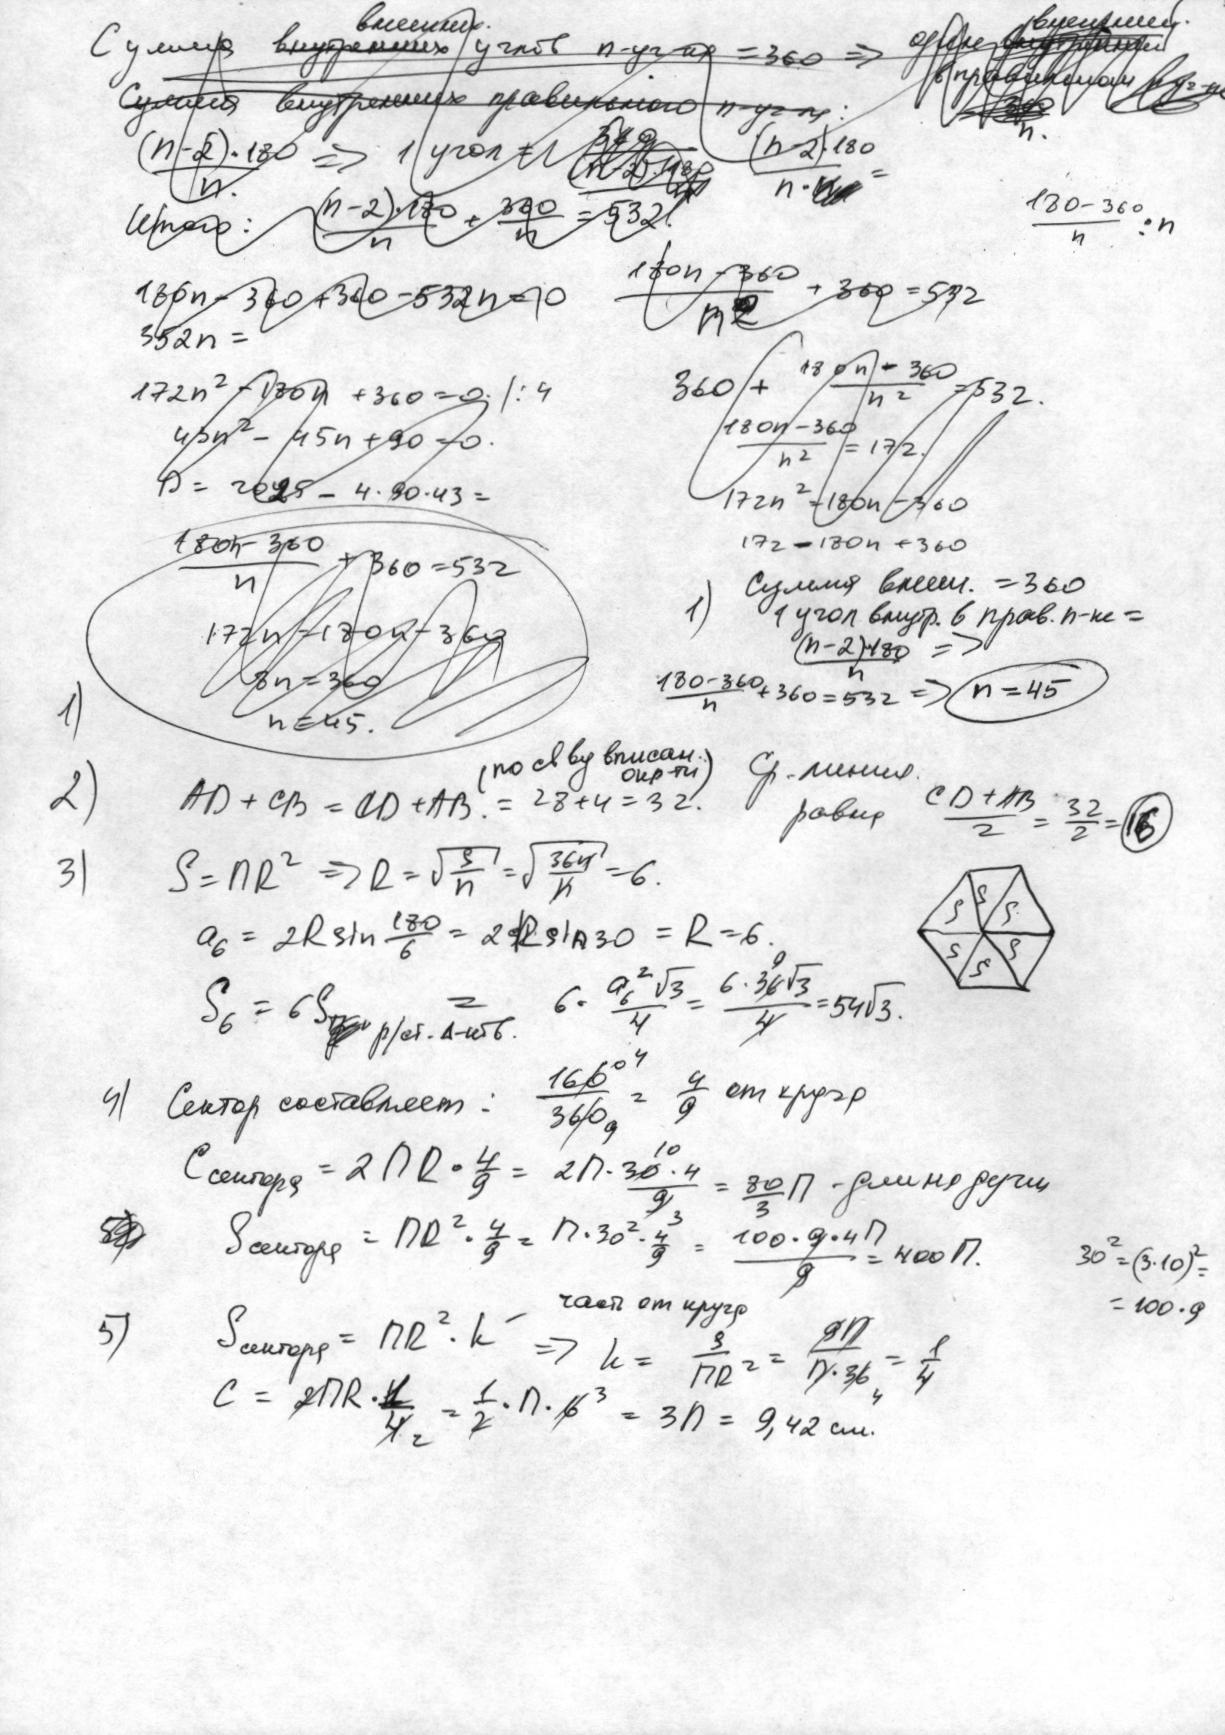 внешних.
Сумма внутренних углов n-уг-ка = 360 => один внутренний
внешний.
в правильном
360
n.
Сумма внутренних правильного n-уг-ка:
(n-2)·180 / n. => 1 угол = (n-2)·180 / n =
Итого: (n-2)·180 / n + 360 / n = 532
180-360 / n : n
180n - 360 + 360 - 532n = 0
180n - 360 / n² + 360 = 532
352n =
172n² - 180n + 360 = 0 /:4
360 + 180n - 360 / n² = 532.
43n² - 45n + 90 = 0.
180n-360 / n² = 172.
D = 2025 - 4·90·43 =
172n² = 180n - 360
172 - 180n + 360
180n-360 / n + 360 = 532
172n = 180n - 360
8n = 360
n = 45.
1)
1) Сумма внеш. = 360
1 угол внутр. в прав. n-ке =
(n-2)·180 / n =>
180-360 / n + 360 = 532 => n = 45
2) AD + CB = CD + AB. = 28+4 = 32. (по св-ву вписан. окр-ти) Ср. линия.
равна CD+AB / 2 = 32 / 2 = 16
3) S = ПR² => R = √(S/П) = √(36П/П) = 6.
a₆ = 2R sin 180/6 = 2R sin 30 = R = 6.
S₆ = 6S р/ст. Δ-ков. = 6· a₆²√3 / 4 = 6·36√3 / 4 = 54√3.
9
S S S S S S
4) Сектор составляет: 160 / 360 = 4/9 от круга
4
9
C сектора = 2ПR · 4/9 = 2П·30·4 / 9 = 80/3 П - длина дуги
10
3
S сектора = ПR² · 4/9 = П·30²· 4/9 = 100·9·4П / 9 = 400П.
30² = (3·10)² =
= 100·9
5) S сектора = ПR² · k - часть от круга => k = S / ПR² = 9П / П·36 = 1/4
4
C = 2ПR · 1/4 = 1/2 · П · 6 = 3П = 9,42 см.
2
3